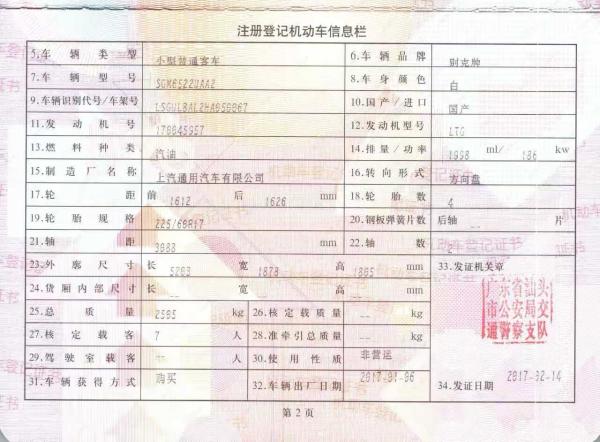 注册登记机动车信息栏
5.车辆类型 小型普通客车 6.车辆品牌 别克牌
7.车辆型号 SGM6522UAA2 8.车身颜色 白
9.车辆识别代号/车架号 10.国产/进口 国产
11.发动机号 12.发动机型号 LTG
13.燃料种类 汽油 14.排量/功率 1998 ml/ 186 kw
15.制造厂名称 上汽通用汽车有限公司 16.转向形式 方向盘
17.轮距 前 1612 后 1626 mm 18.轮胎数 4
19.轮胎规格 225/60R17 20.钢板弹簧片数 后轴 -- 片
21.轴距 3088 mm 22.轴数 2
23.外廓尺寸 长 5203 宽 1878 高 1805 mm 33.发证机关章
24.货厢内部尺寸 长 -- 宽 -- 高 -- mm
广东省汕头
市公安局交
通警察支队
25.总质量 kg 26.核定载质量 -- kg
27.核定载客 7 人 28.准牵引总质量 -- kg
29.驾驶室载客 -- 人 30.使用性质 非营运
31.车辆获得方式 购买 32.车辆出厂日期 2017-01-06 34.发证日期 2017-02-14
第2页